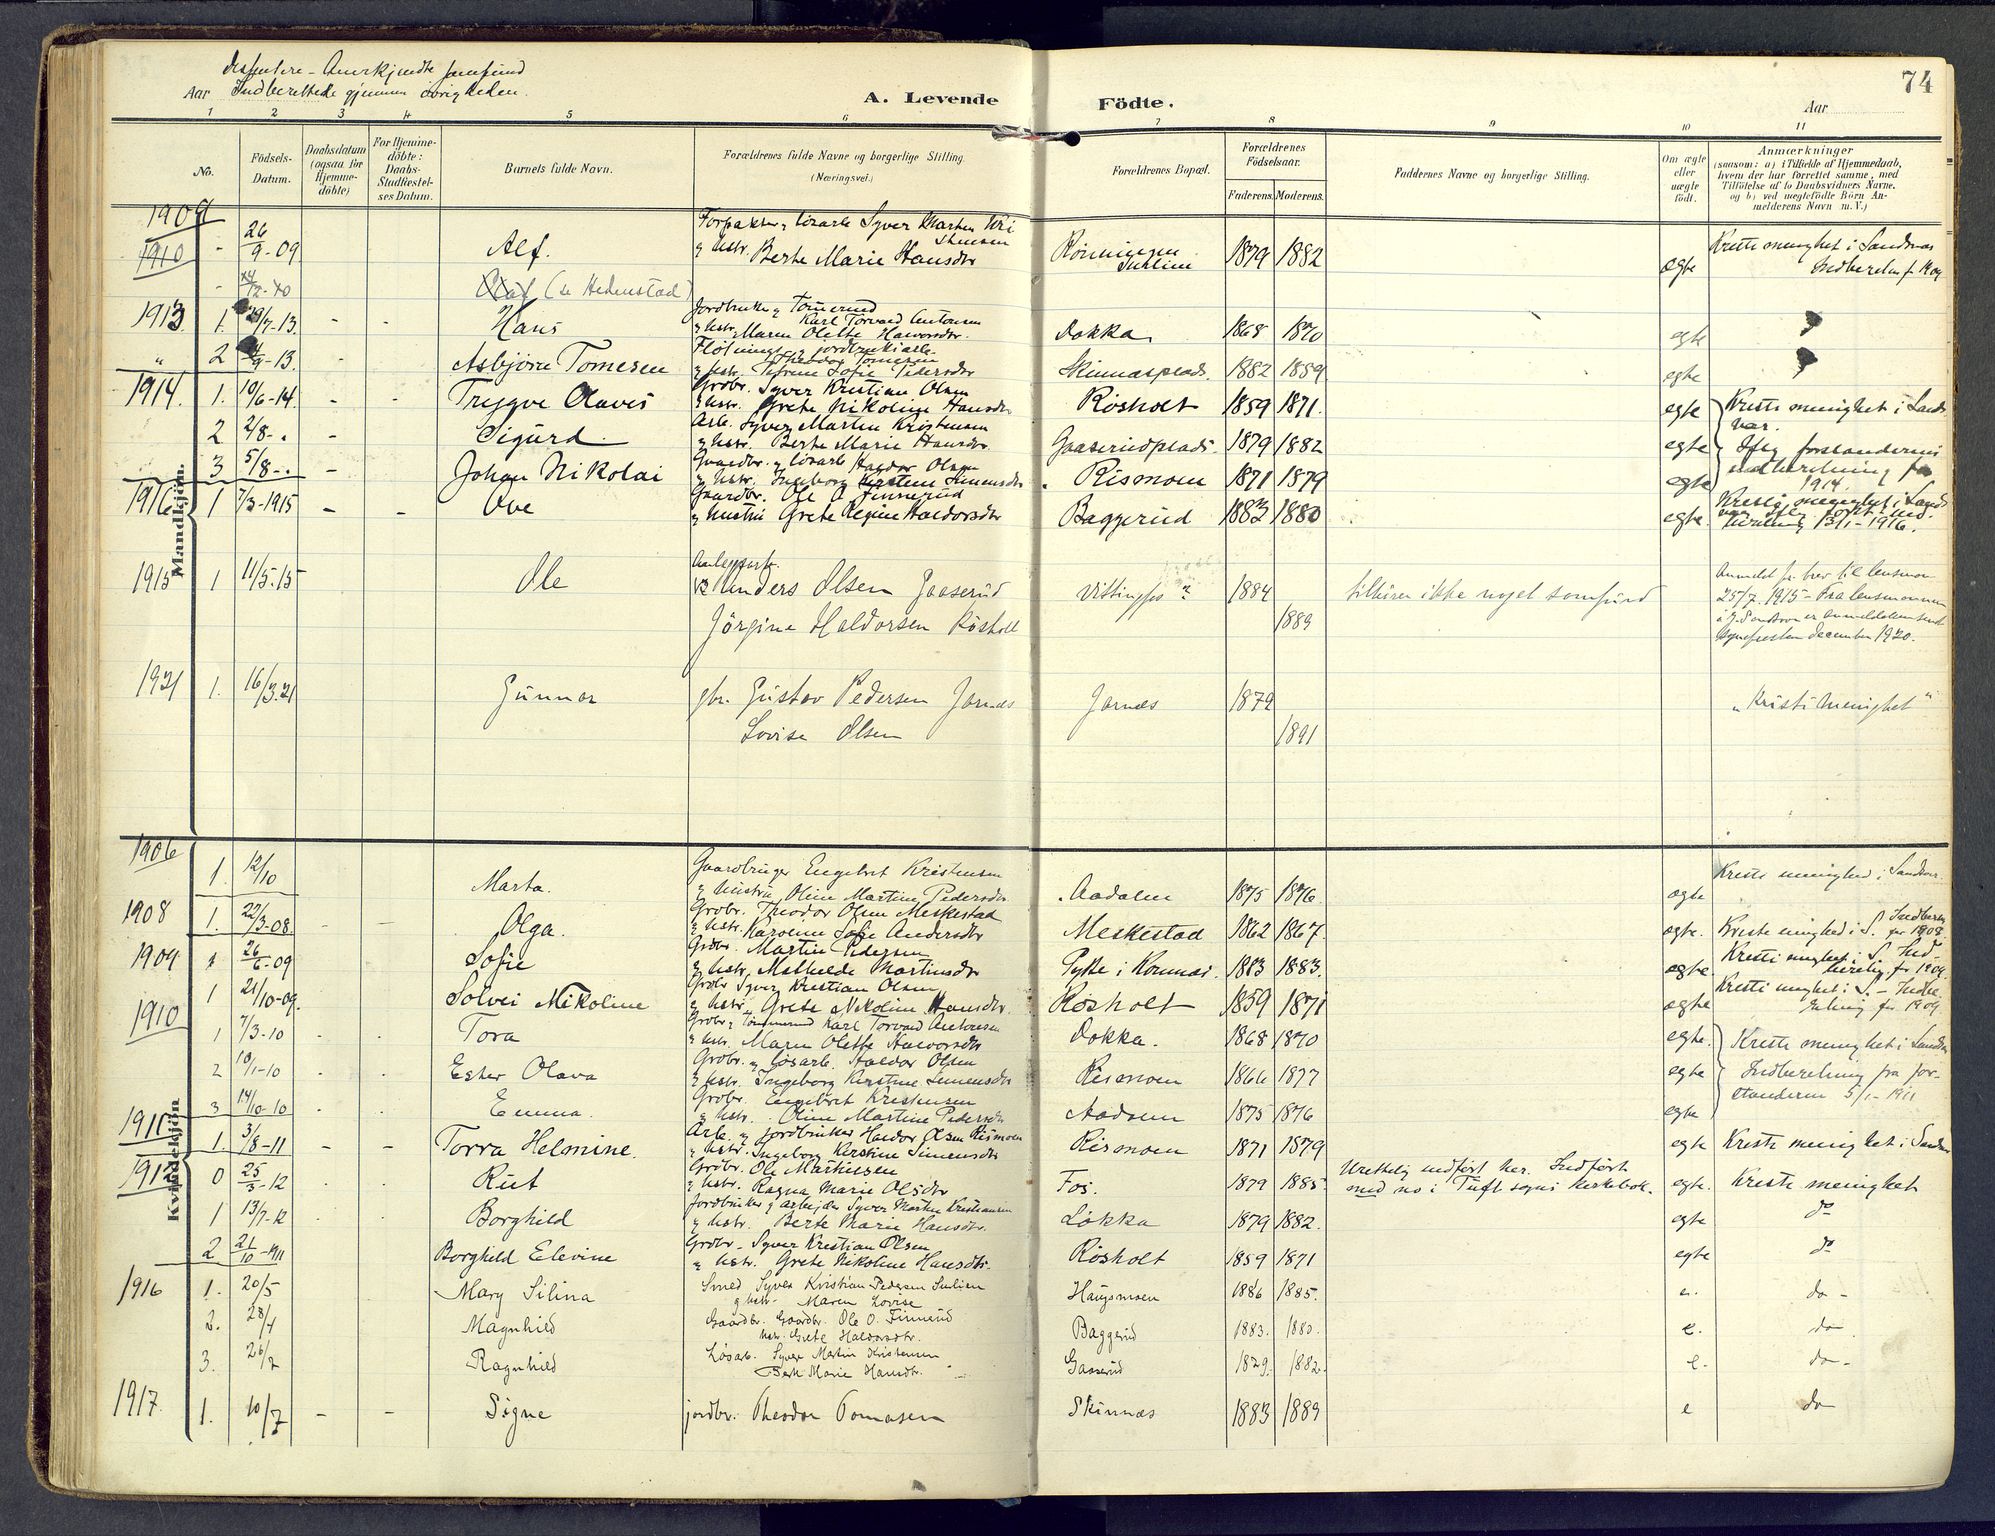 74
Dissentere - Anerkjendte samfund
Aar Indberettede gjennem øvrigheden.
A. Levende Födte.
Aar
1 2 3 4 5 6 7 8 9 10 11
No.
Födsels-Datum.
Daabsdatum (ogsaa for Hjemme-döbte)
For Hjemme-döbte: Daabs-Stadfæstel-ses Datum.
Barnets fulde Navn.
Forældrenes fulde Navne og borgerlige Stilling. (Næringsvei.)
Forældrenes Bopæl.
Forældrenes Födselsaar.
Faderens. Moderens.
Faddernes Navne og borgerlige Stilling.
Om ægte eller uægte födt.
Anmærkninger
(saasom: a) i Tilfælde af Hjemmedaab, hvem der har forrettet samme, med Tilföielse af to Daabsvidners Navne. og b) ved uægtefödte Börn An-melderens Navn m. V.)
Mandkjön.
1909
1910 - 26/9-09 Alf. Forpakter, løsarb. Syver Martin Kri
stensen
& hstr. Berte Marie Hansdtr Rönningen 1879 1882 ægte Kristi menighet i Sandsvær
Indberetn. f. 1909
- 12-10 Olaf (se Hedenstad)
1913 1. 29/7-13. - - Hans Jordbruker & Tömmermd
Karl Torvard Antonsen
& hstr. Maren Olette Halvorsdtr. Dokka 1868 1870 egte
" 2 9-13. Asbjörn Tomesen Flötnings- & jordbruksarb.
Theodor Tomesen
& hstr. Sofie Pedersdtr Skinnesplads. 1882 1889 egte
1914. 1. 10/6-14. - - Tryggve Olaves Grdbr. Syver Kristian Olsen
& hstr. Grete Nikoline Hansdtr Røsholt 1859 1871. egte Kristi menighet i Sands-
vær.
2 2/8-. - Sigurd. Arb. Syver Martin Kristensen
& hstr. Berte Marie Hansdtr. Gaaserudplads. 1879 1882 egte Iflg forstanderens
indberetning fra
3 5/8-. - Johan Nikolai Gaardbr. & løsarb. Haldor Olsen
& hstr. Ingeborg Kirstine Simensdtr Rismoen 1871 1879 egte 1914.
1916 1 7/3-1915 - - Ove Gaardbr. Ole O. Finnerud
& hustru Grete Regine Haldorsdtr Baggerud 1883 1880 egte Kristi menighet i Sands-
vær iflg.
13/1-1916.
1915 1 11/5.15 Ole Anlegsarb.
Anders Olsen Gaaserud
Jörgine Haldorsen Røsholt Vittingfos 1884 1889 tilhører ikke noget samfund Anmeldt fr brev til lensman
25/7.1915 - Fra lensmannen
i Y. Sandsvær er anmeldelsen sendt
sognepresten december 1920.
1921 1. 16/3.21 Gunnar gbr. Gustav Pedersen Jarnæs
Lovise Olsen Jarnæs 1879 1891 "Kristi Menighet"
Kvindekjön
1906 1. 12/10 Marta. Gaardbruger Engebret Kristensen
& hustru Oline Martine Pedersdtr Aadalen 1875 1876. ægte Kristi menighed i Sandsvær.
1908 1. 22/3-08. - Olga. Grdbr. Theodor Olsen Meskestad
& hstr. Karoline Sofie Andersdtr Meskestad 1862 1867. egte. Kristi menighed i S. Indberetn.
for 1908.
1909 1 26/6-09 Sofie Grdbr. Martin Pedersen
& hstr. Mathilde Martinsdtr 1883 1883. ægte Kristi menighet i S. Ind-
beretng. for 1909.
1 21/10-09. Solvei Nikoline Grdbr Syver Kristian Olsen
& hstr. Grete Nikoline Hansdtr. Røsholt 1859 1871 ægte Kristi menighet i S. - Indbe-
retning for 1909
1910 1 7/3-10 Tora Grdbr. & Tömmermd Karl Torvard Antonsen
& hstr. Maren Olette Halvorsdtr Dokka. 1868 1870 egte. Kristi menighet i Sandsvær
2 10/1-10 Ester Olava Grdbr. & løsarb. Haldor Olsen
& hstr. Ingeborg Kirstine Simensdtr Rismoen 1877 egte Indberetning fra for-
3 14/10-10 Emma. Grdbr. Engebret Kristensen
& hstr. Oline Martine Pedersdtr Aadalen 1875 1876 egte standeren 5/1-1911
1911 1. 3/8-11 Torra Helmine. Arb. & jordbruker Haldor Olsen Rismoen
& hstr. Ingeborg Kirstine Simensdtr Rismoen 1871 1879 egte Kristi menighet i Sandsvær
1912 0 25/3-12 Rut Grdbr. Ole Markussen
& hstr. Ragna Marie Olsdtr Fos. 1879 1885. Urettelig indført her. Indført
med no i Tuft sogns kirkebok. egte. Kristi menighet
1 13/7-12 Borghild Jordbruker & arbeider Syver Martin Kristiansen
& hstr. Berte Marie Hansdtr. Løkka 1879 1882. egte do
2 21/10-1911 Borghild Elevine Grdbr. Syver Kristian Olsen
& hstr. Grete Nikoline Hansdtr. Røsholt 1859 1871 egte do
1916 1. 20/5 Mary Silina Smed Syver Kristian Pedersen Suhlien
& hstr. Maren Lovise Haugsmoen 1886 1885. e. do -
2. 28/4 Magnhild Gaardbr. Gaardbr. Ole O. Finnerud
hstr. Grete Haldorsdtr. Baggerud 1883. 1880. e. do
3. 26/7 Ragnhild Løsarb. Syver Martin Kristensen
Berte Marie Hansdtr. Gasserud 1879. 1882. e. do -
1917. 1. 10/7 - - Signe jordbr. Theodor Tomasen Skinnæs 1883 1889 e do